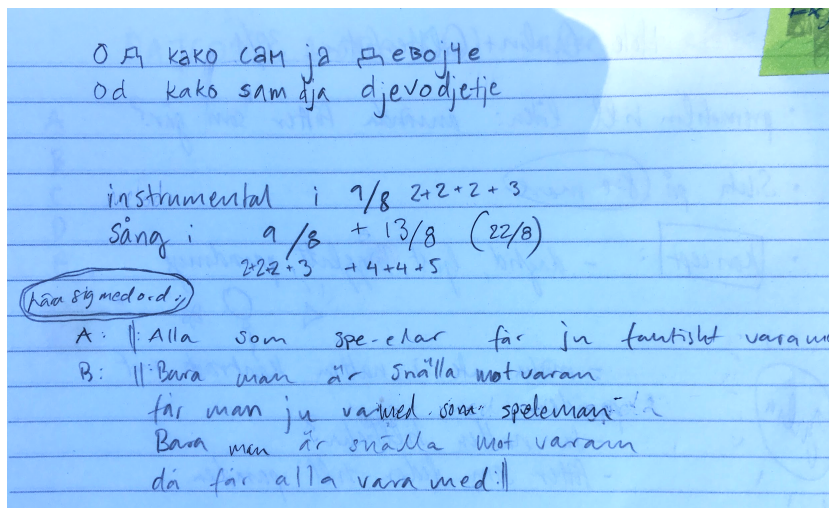 Од како сам ја девојче
Od kako sam dja djevodjetje
instrumental i 9/8 2+2+2+3
Sång i 9/8 + 13/8 (22/8)
2+2+2+3 +4+4+5
Lära sig med ord:
A: ||: Alla som spe-elar får ju faktiskt vara me
B: ||: Bara man är snälla mot varan
får man ju va med som speleman
Bara man är snälla mot varann
då får alla vara med :||